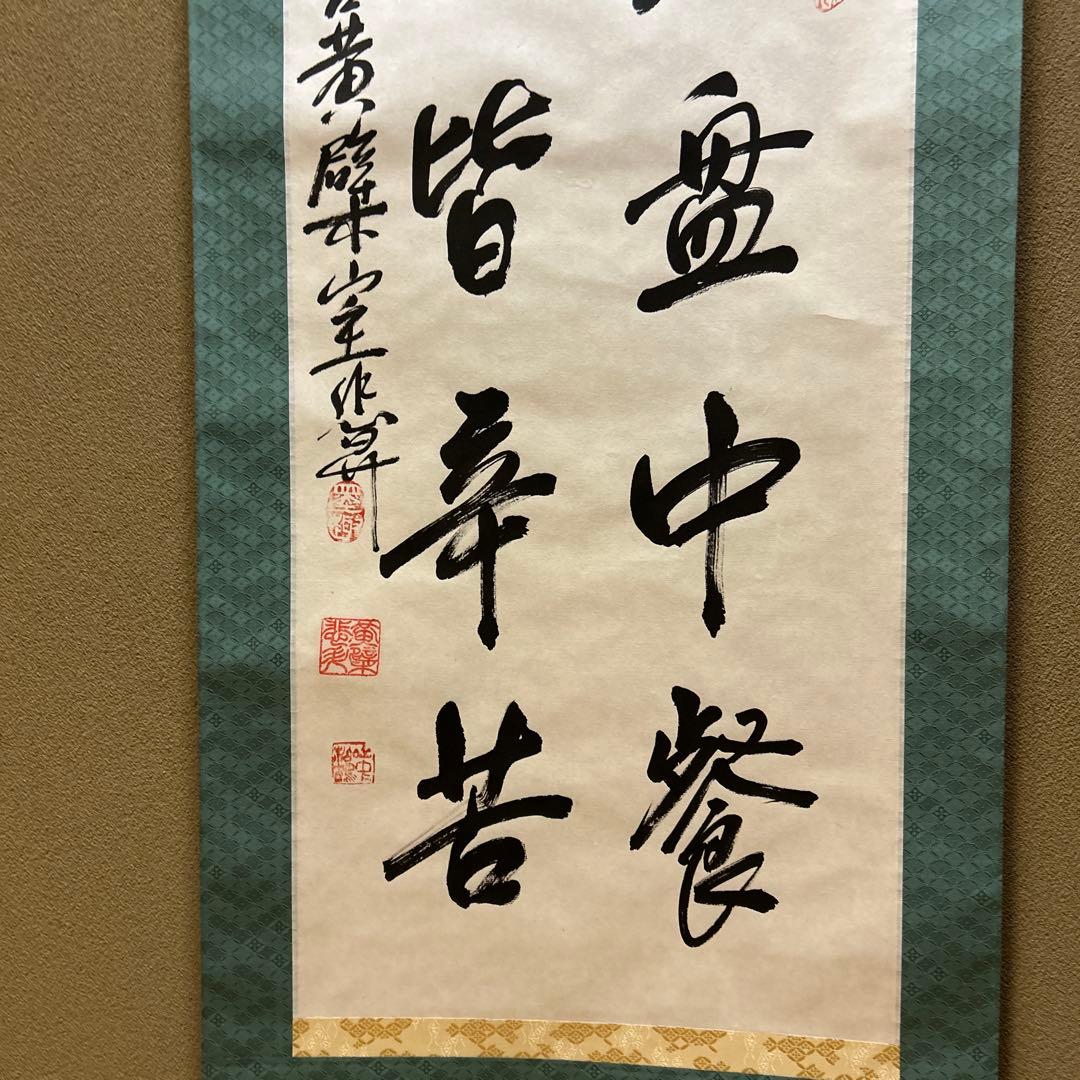 盤中餐
皆辛苦
黄檗山主